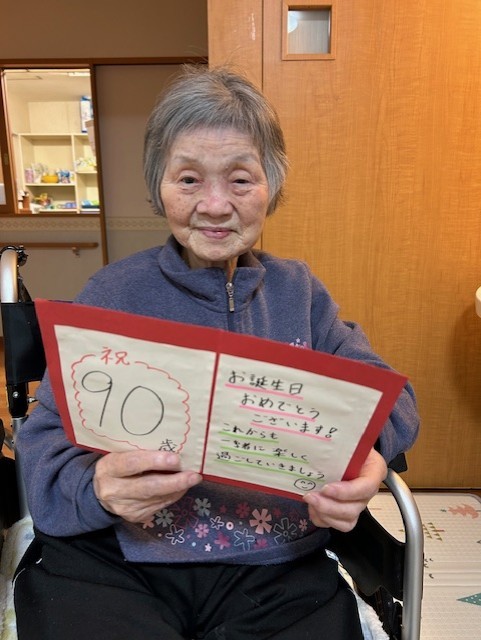 祝
90
歳
お誕生日
おめでとう
ございます!
これからも
一緒に楽しく
過ごしていきましょう